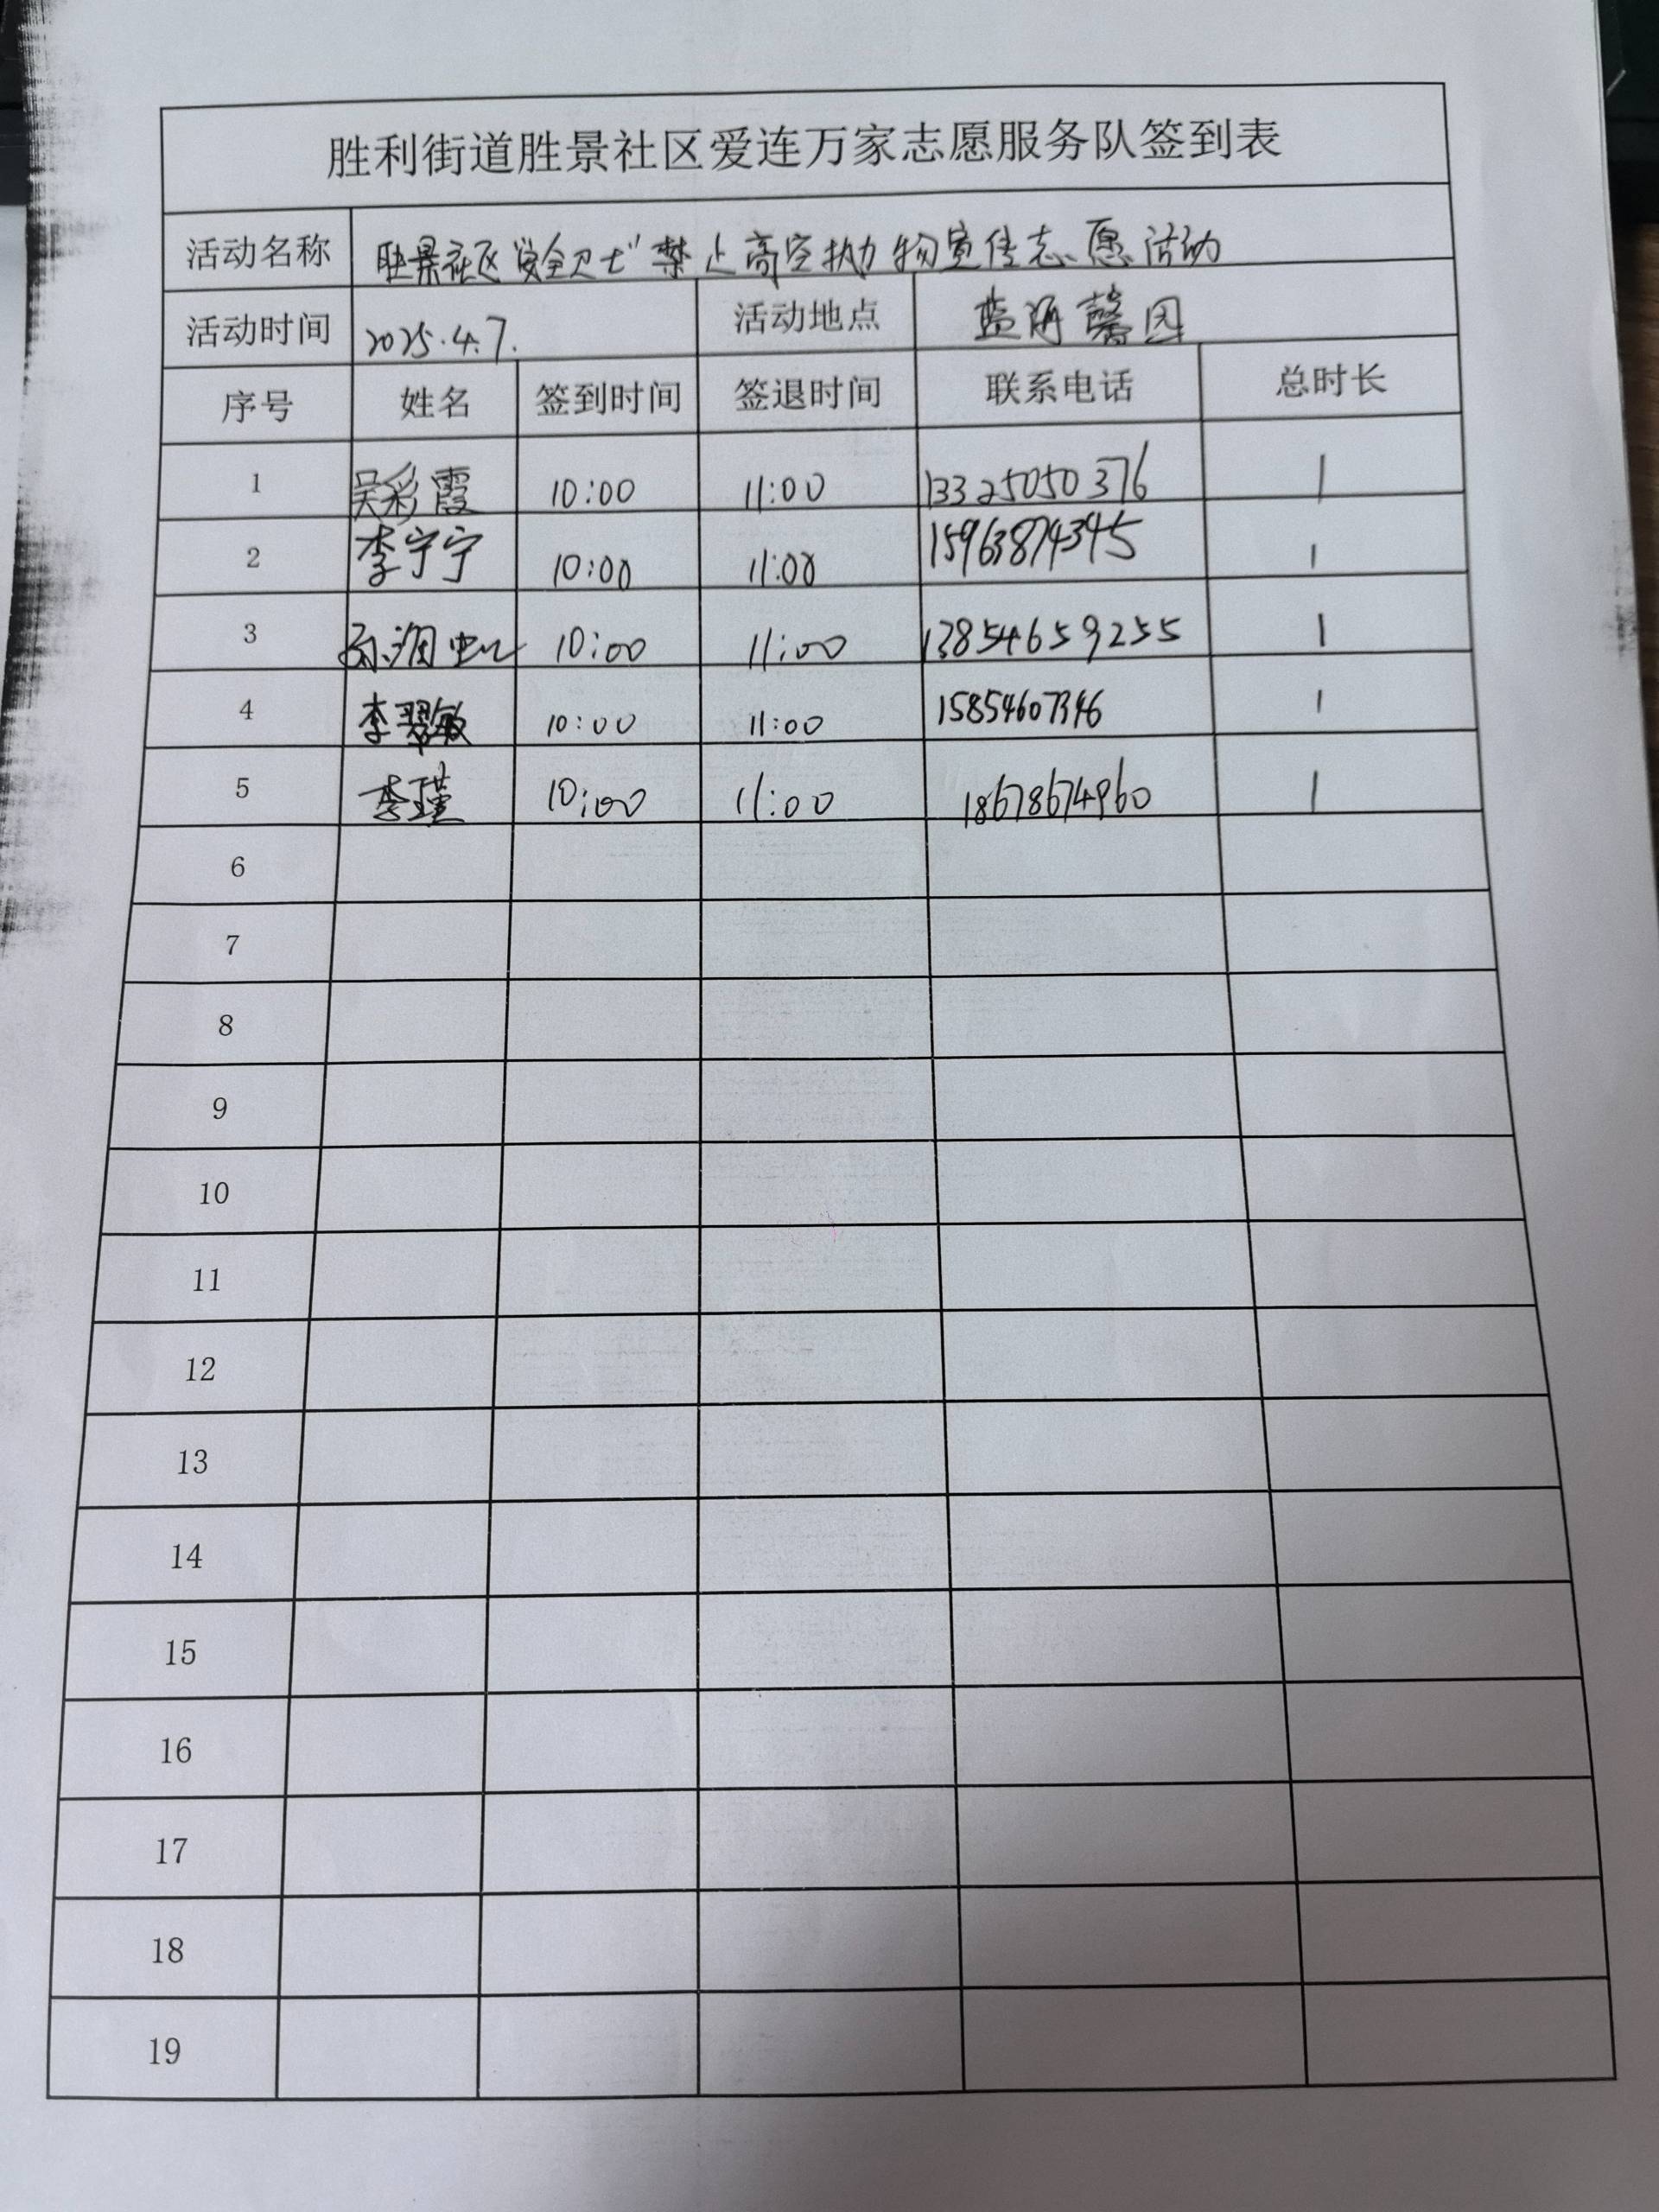 胜利街道胜景社区爱连万家志愿服务队签到表
活动名称 胜景社区"安全卫士"禁止高空抛物宣传志愿活动
活动时间 2025.4.7. 活动地点 蓝海馨园
序号 姓名 签到时间 签退时间 联系电话 总时长
1 吴彩霞 10:00 11:00 13325050376 1
2 李宁宁 10:00 11:00 15963874345 1
3 10:00 11:00 13854659255 1
4 李翠敏 10:00 11:00 15854607346 1
5 李瑾 10:00 11:00 18678674960 1
6
7
8
9
10
11
12
13
14
15
16
17
18
19